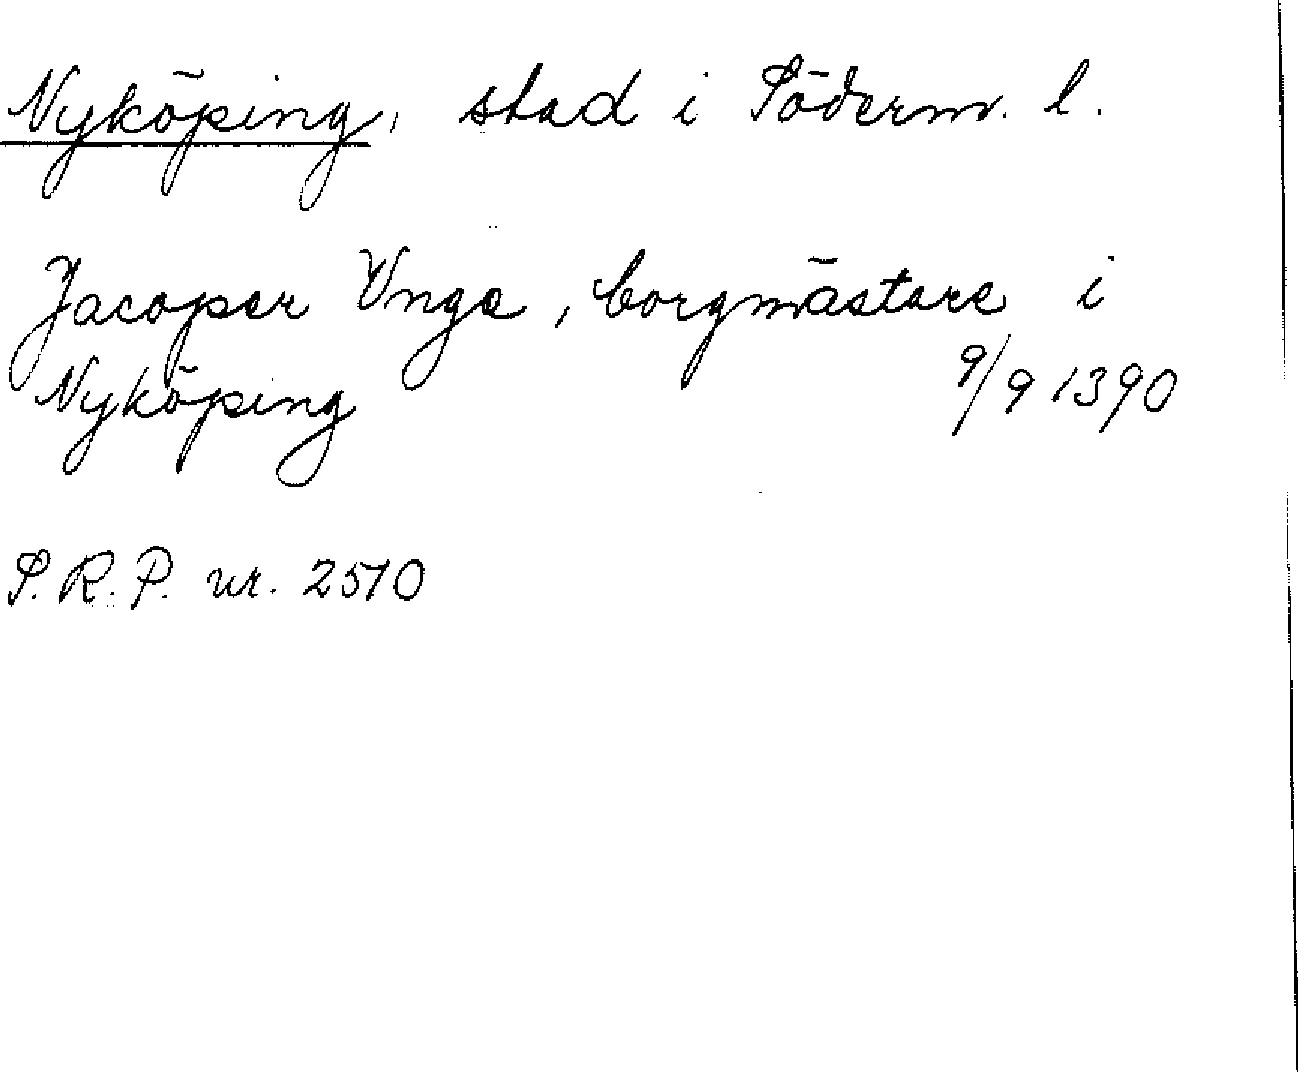 Nyköping, stad i Söderm. l.
Jacoper Unge, borgmästare i
Nyköping 9/9 1390
S.R.P. nr. 2510